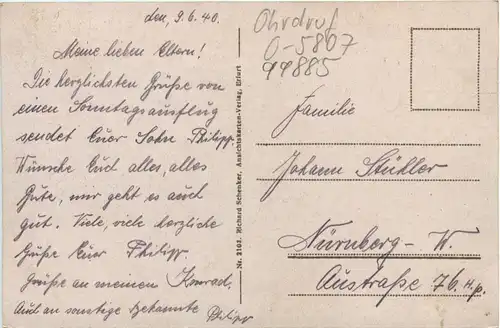 den, 9.6.40.
Meine lieben Eltern!
Die herzlichsten Grüße von
einen Sonntagsausflug
sendet Euer Sohn Philipp.
Wünsche Euch alles, alles
Gute, mir geht es auch
gut. Viele, viele herzliche
Grüße Euer Philipp.
Grüße an meinen Konrad.
Auch an sonstige Bekannte
Philipp
Nr. 2102. Richard Schenker, Ansichtskarten-Verlag, Erfurt
Ohrdruf
O-5807
99885
Familie
Johann Stühler
Nürnberg-W.
Austraße 76. H.p.